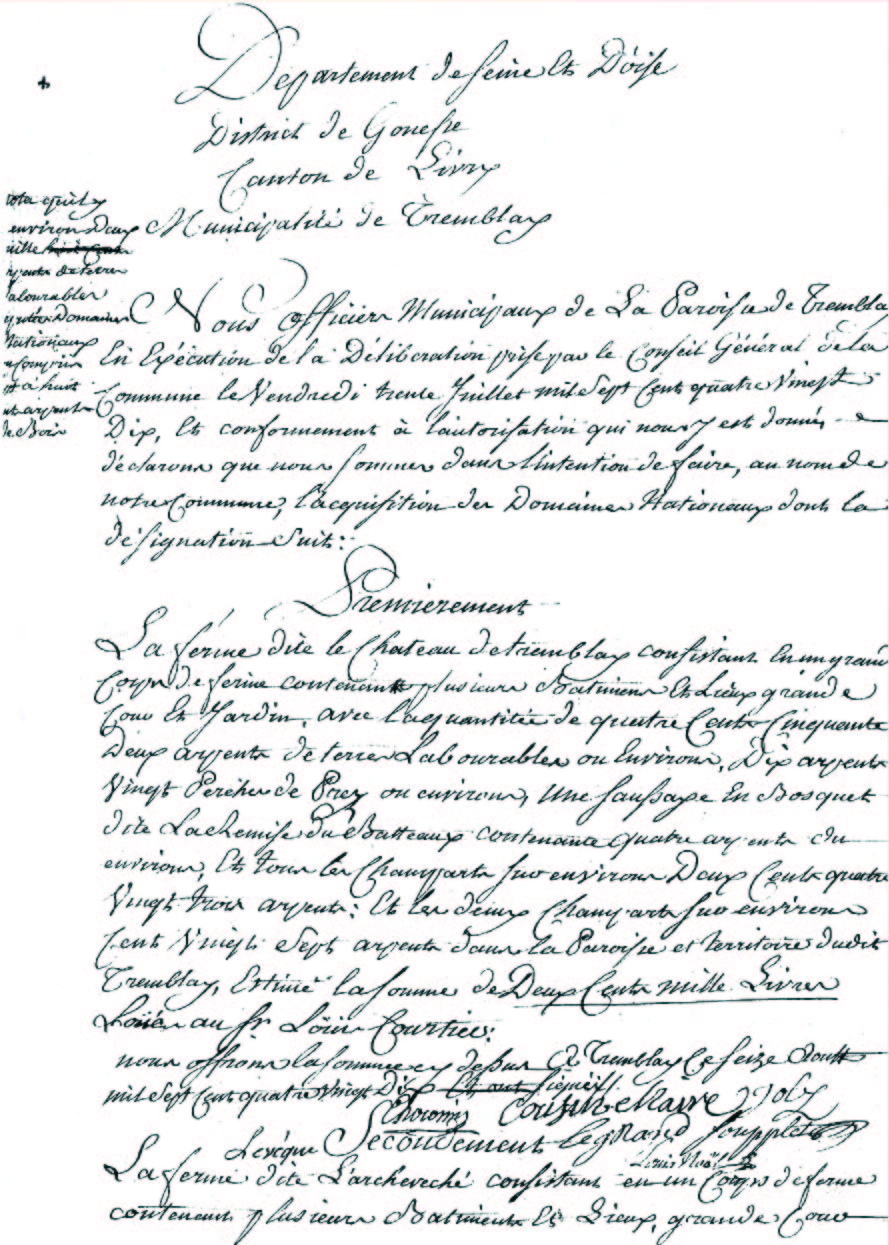 Departement de Seine Et D'oise
District de Gonesse
Canton de Livry
Municipalité de Tremblay
nota quil y
environ Deux
mille
arpents de terres
labourables
Domaines
Nationaux
compris
et à huit
cent arpents
de Bois
Nous officiers Municipaux de La Paroisse de Trembla
En Exécution de la Déliberation prise par le Conseil Général de la
Commune le Vendredi trente Juillet mil Sept Cent quatre Vingt
Dix, Et conformement à l'autorisation qui nous y est donnée
déclarons que nous sommes dans l'intention de faire, au nom de
notre Commune, l'acquisition des Domaines Nationaux dont la
désignation Suit:
Premierement
La ferme dite le Chateau de tremblay consistant En un grand
Corps de ferme contenant plusieurs Batimens Et Lieux grande
Cour Et Jardin, avec la quantitée de quatre Cents Cinquante
Deux arpents de terres Labourables ou Environs, Dix arpents
Vingt Perches de Prez ou environs, Une saussaye En Bosquet
dite La chemise du Batteaux contenante quatre arpents ou
environs, Et tous les Champarts sur environs Deux Cents quatre
Vingt trois arpents: Et les deux Champarts sur environs
Cent Vingt Sept arpents dans la Paroisse et territoire dudit
Tremblay, Estimé la somme de Deux Cents mille Livres
Loüée au Sr Loüis Courtier:
nous offrons la somme cy dessus A Tremblay Ce Seize Aoust
mil Sept Cent quatre Vingt Dix Et ont signés
Cousin Maire Joly
Levéque Secondement Legrand Soupplet
Louis Noël
La ferme dite L'archeveché consistant en un Corps de ferme
contenant plusieurs Batiments Et Lieux, grande Cour